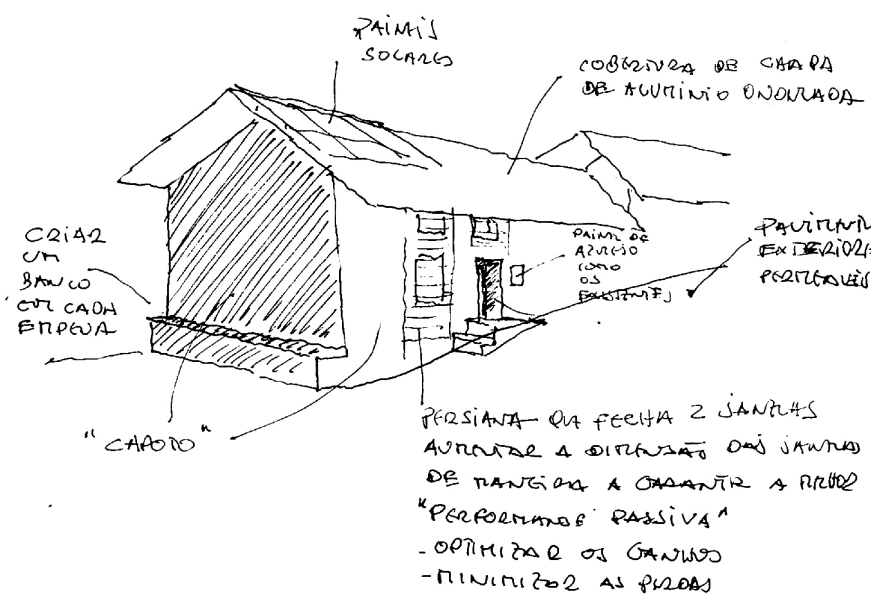 PAINÉIS
SOLARES
COBERTURA DE CHAPA
DE ALUMÍNIO ONDULADA
CRIAR
UM
BANCO
EM CADA
EMPENA
PAINEL DE
AZULEJO
COMO
OS
EXISTENTES
PAVIMENT
EXTERIORE
PERMEÁVEIS
"CAPOTO"
PERSIANA QUE FECHA 2 JANELAS
AUMENTAR A DIMENSÃO DAS JANELAS
DE MANEIRA A GARANTIR A MELHOR
"PERFORMANCE PASSIVA"
- OPTIMIZAR OS GANHOS
- MINIMIZAR AS PERDAS